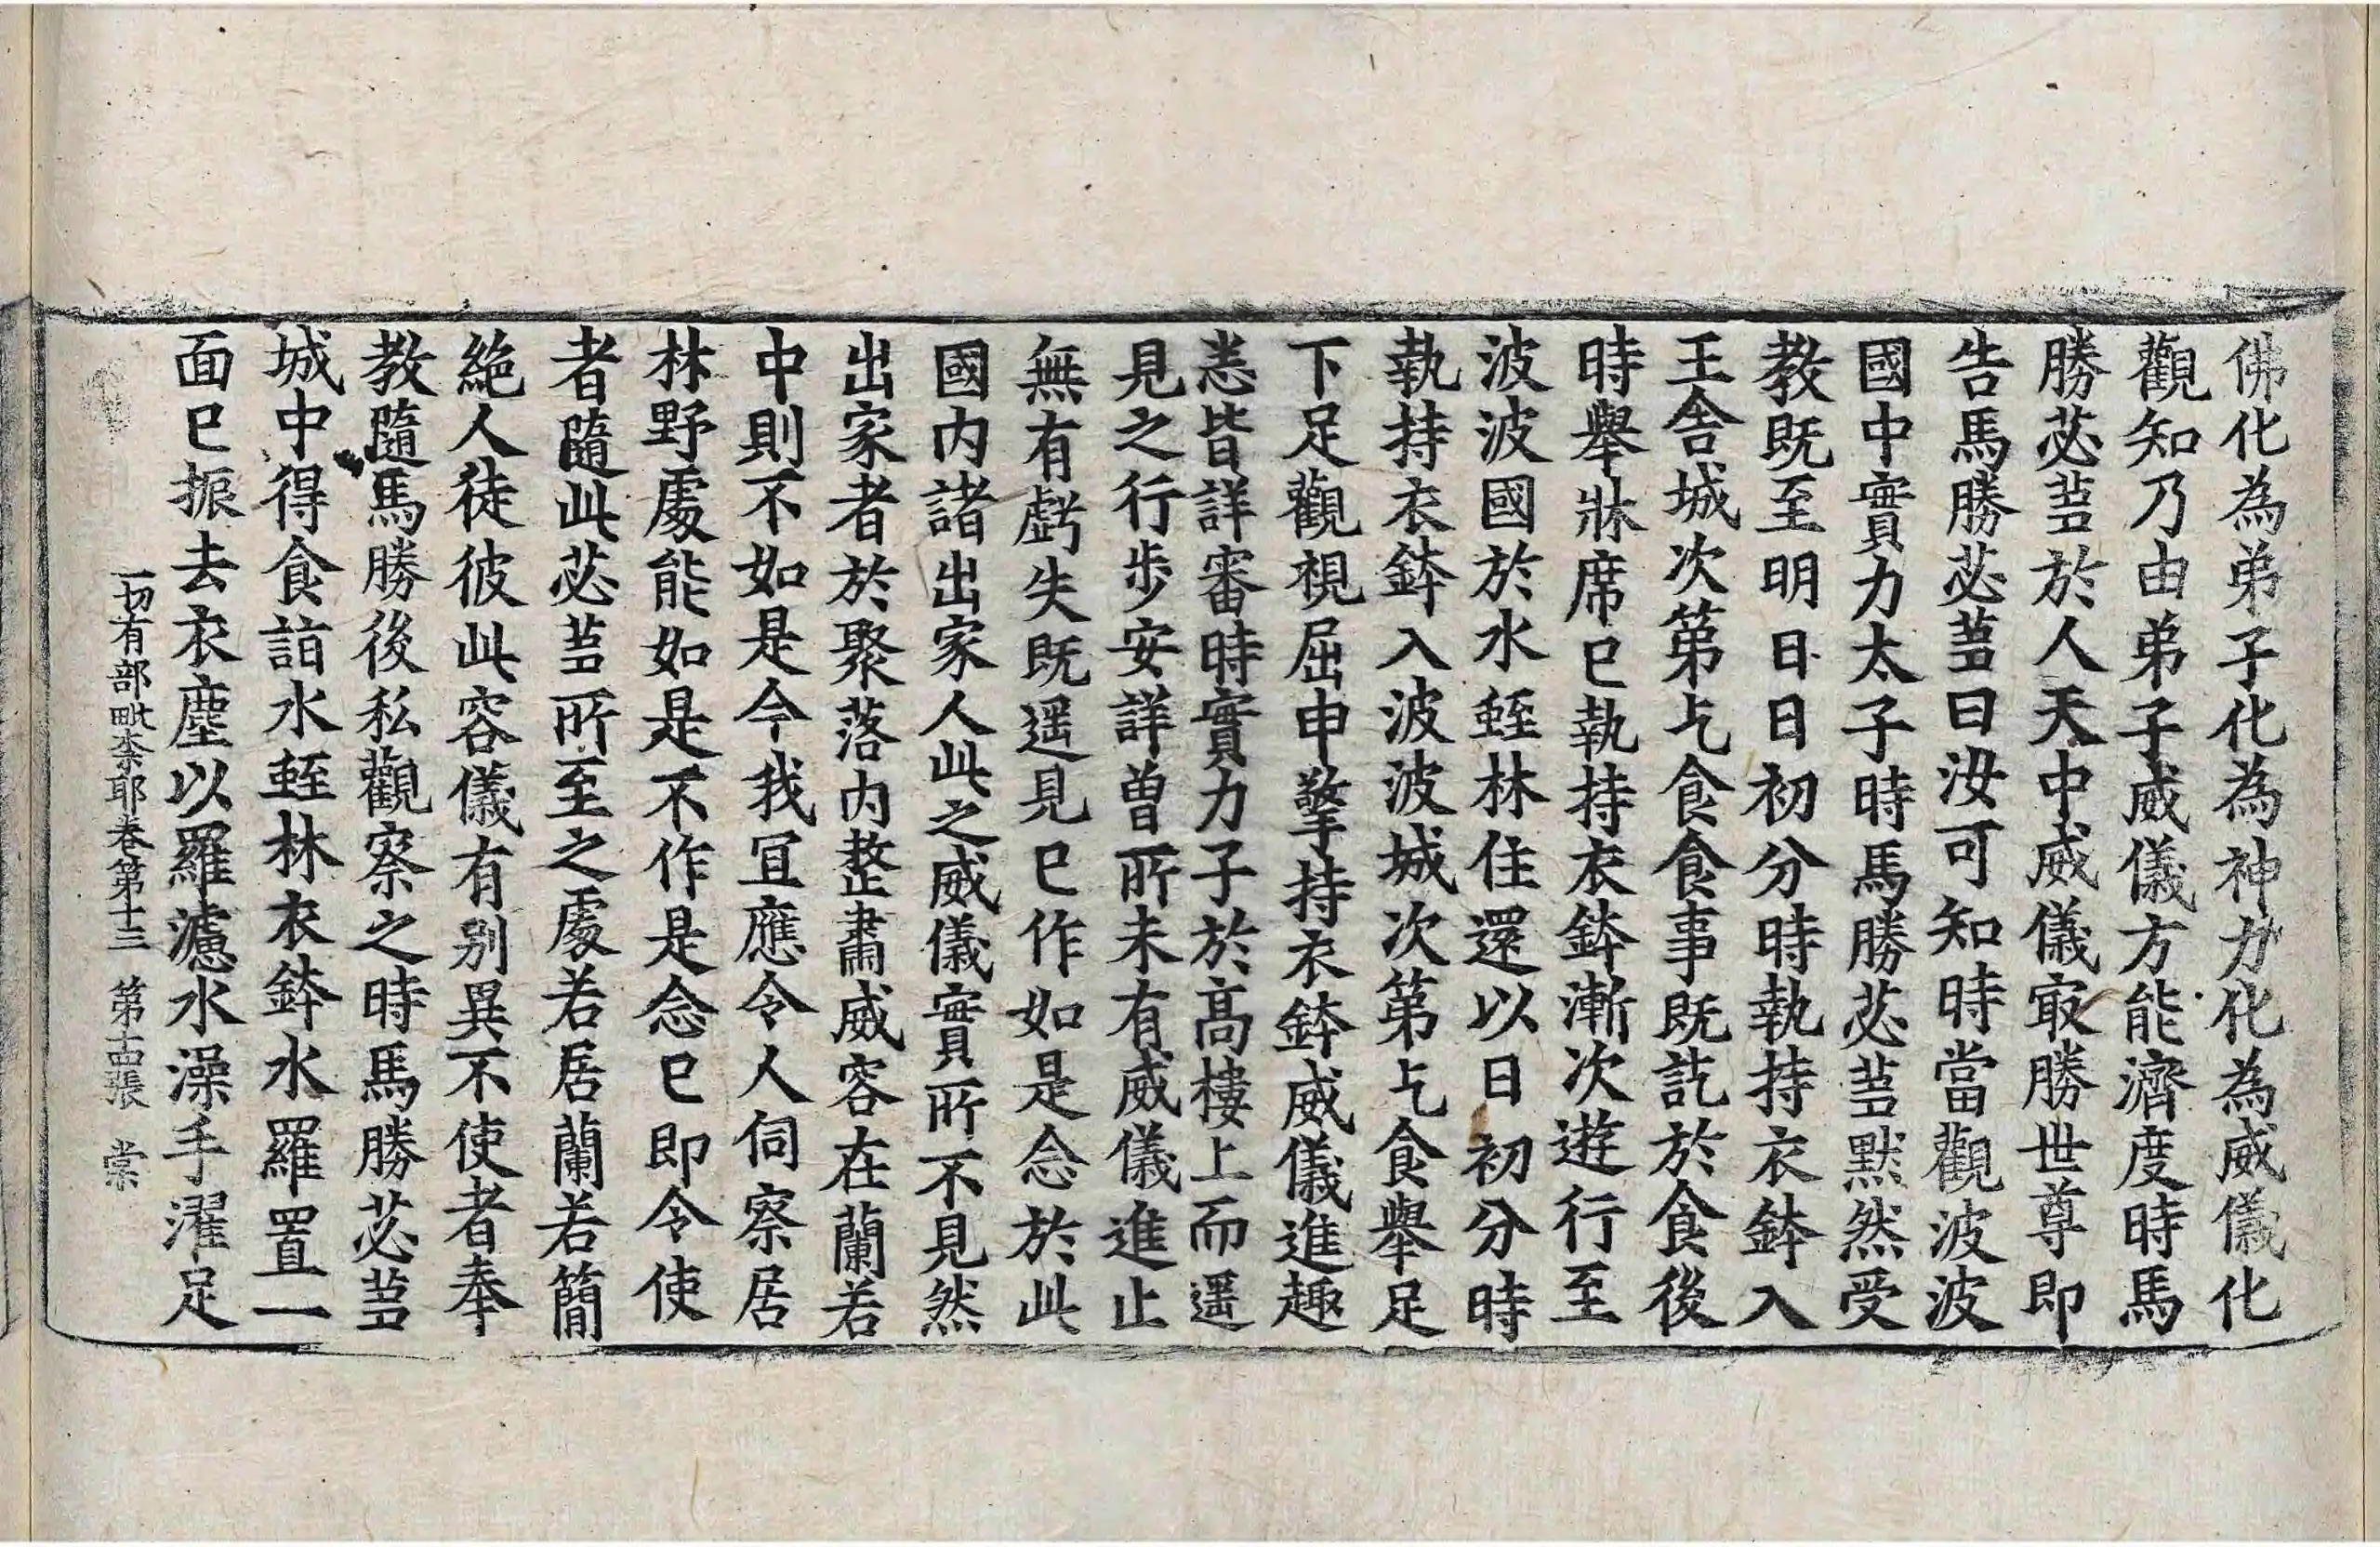 佛化為弟子化為神力化為威儀化
觀知乃由弟子威儀方能濟度時馬
勝苾蒭於人天中威儀㝡勝世尊即
告馬勝苾蒭曰汝可知時當觀波波
國中實力太子時馬勝苾蒭默然受
教既至明日日初分時執持衣鉢入
王舍城次第乞食食事既訖於食後
時舉牀席已執持衣鉢漸次遊行至
波波國於水蛭林住還以日初分時
執持衣鉢入波波城次第乞食舉足
下足觀視屈申擎持衣鉢威儀進趣
悉皆詳審時實力子於高樓上而遥
見之行步安詳曾所未有威儀進止
無有虧失既遥見已作如是念於此
國内諸出家人此之威儀實所不見然
出家者於聚落内整肅威容在蘭若
中則不如是今我宜應令人伺察居
林野處能如是不作是念已即令使
者隨此苾蒭所至之處若居蘭若簡
絶人徒彼此容儀有别異不使者奉
教隨馬勝後私觀察之時馬勝苾蒭
城中得食詣水蛭林衣鉢水羅置一
面已振去衣塵以羅濾水澡手濯足
一切有部毗柰耶卷第十三 第十四張 棠